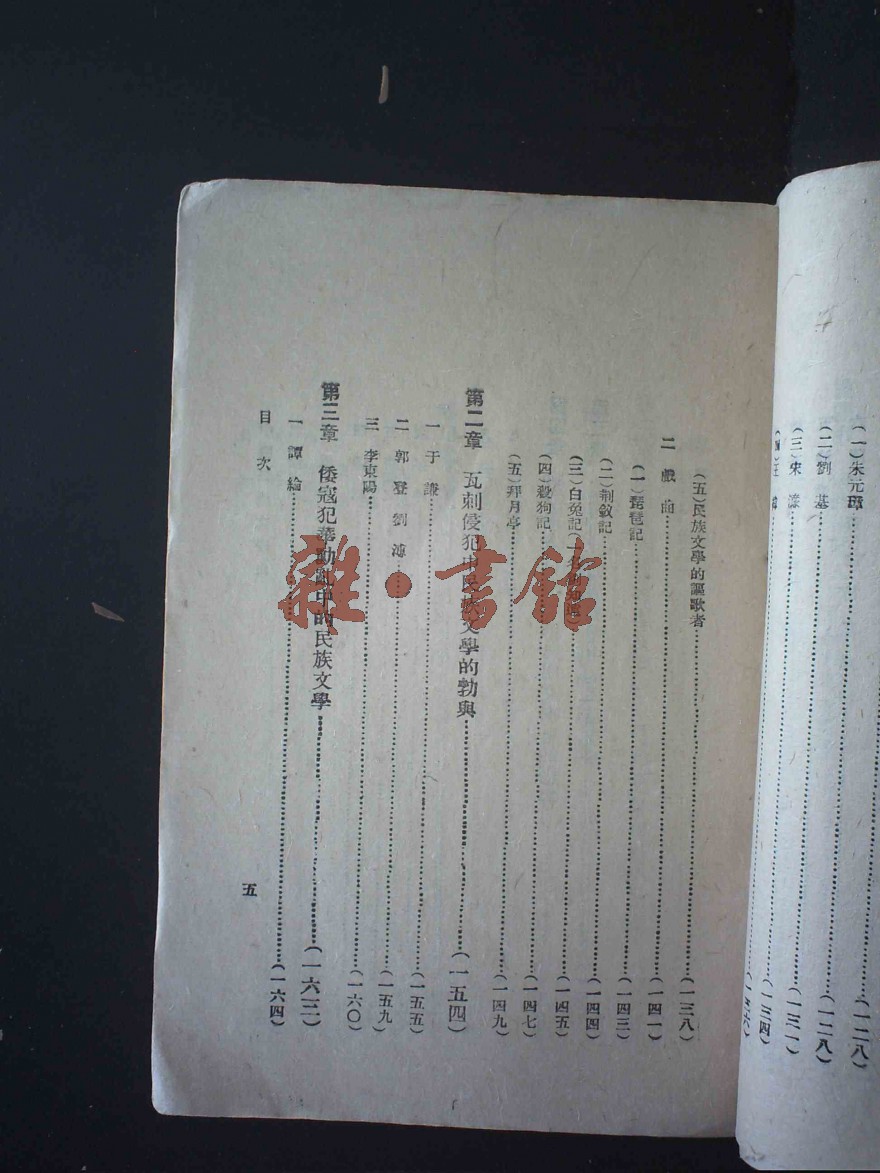 (一)朱元璋……(一二八)
(二)劉基……(一二八)
(三)宋濂……(一三一)
(一三四)
(五)民族文學的謳歌者……(一三八)
二 戲曲……(一四一)
(一)琵琶記……(一四三)
(二)荆釵記……(一四四)
(三)白兔記(一名……(一四五)
(四)殺狗記……(一四七)
(五)拜月亭……(一四九)
第二章 瓦剌侵犯中民族文學的勃興……(一五四)
一 于謙……(一五五)
二 郭登 劉溥……(一五九)
三 李東陽……(一六〇)
第三章 倭寇犯華動亂中的民族文學……(一六三)
一 譚綸……(一六四)
目次
五
雜·書館